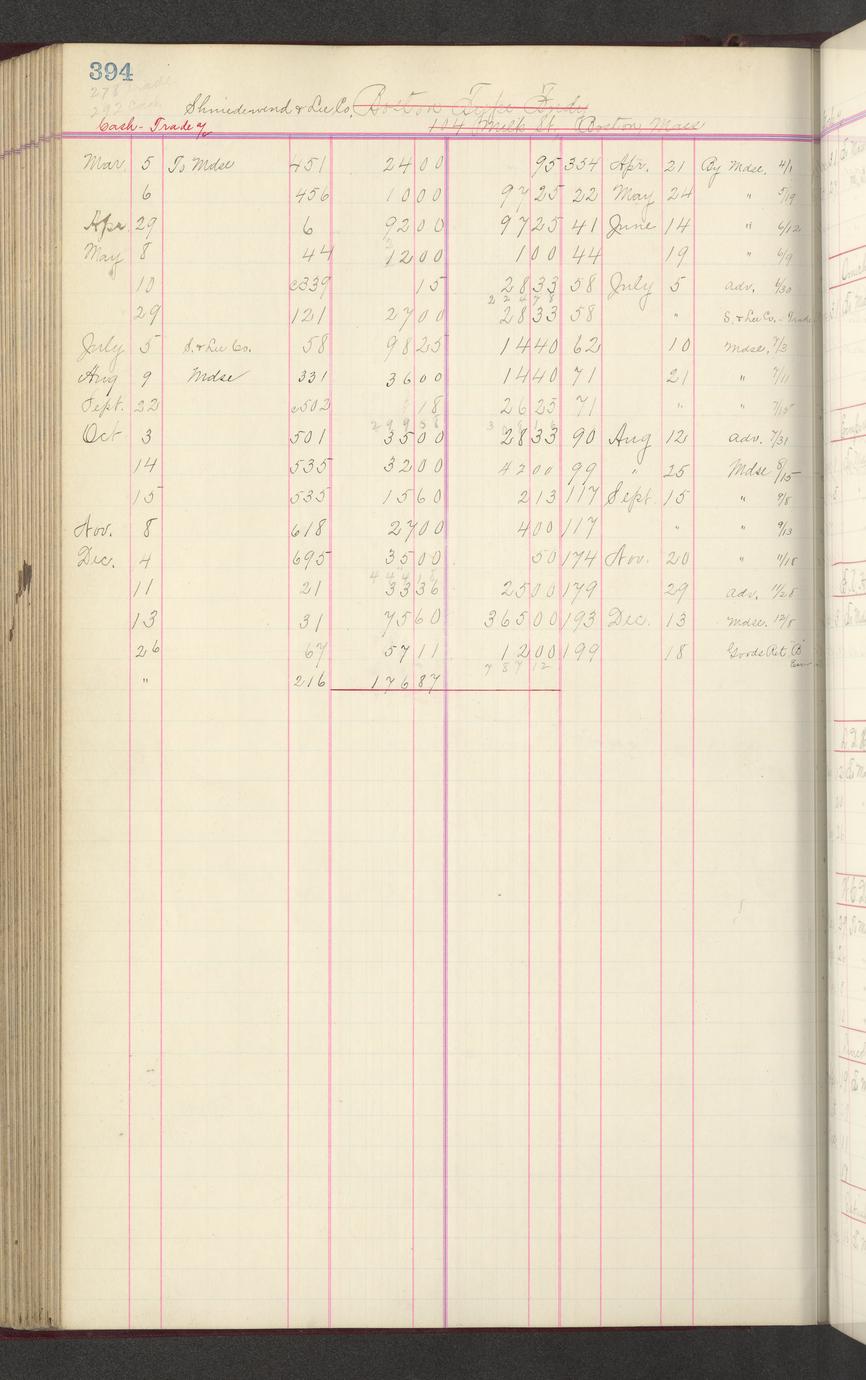 394
278 Trade
292 Cash
Shniedewend & Lee Co. Boston Type Fndy
Cash - Trade 104 Milk St. Boston Mass
Mar. 5 To Mdse 451 24 00 95 354 Apr. 21 By Mdse. 4/1
6 456 10 00 97 25 22 May 24 " 5/19
Apr. 29 6 92 00 97 25 41 June 14 " 6/12
May 8 44 12 00 1 00 44 19 " 6/9
10 c339 15 28 33 58 July 5 adv. 6/30
224 78
29 121 27 00 28 33 58 " S. & Lee Co. - Trade
July 5 S. & Lee Co. 58 98 25 14 40 62 10 Mdse. 7/3
Aug 9 Mdse 331 36 00 14 40 71 21 " 7/11
Sept. 22 c502 18 26 25 71 " " 7/15
299 58
Oct 3 501 35 00 28 33 90 Aug 12 adv. 7/31
14 535 32 00 42 00 99 " 25 Mdse 8/15
15 535 15 60 2 13 117 Sept. 15 " 9/8
Nov. 8 618 27 00 4 00 117 " " 9/13
Dec. 4 695 35 00 50 174 Nov. 20 " 11/18
444 18
11 21 33 36 25 00 179 29 adv. 11/28
13 31 75 60 365 00 193 Dec. 13 Mdse. 12/8
26 67 57 11 12 00 199 18 Goods Ret "B"
787 12
" 216 176 87